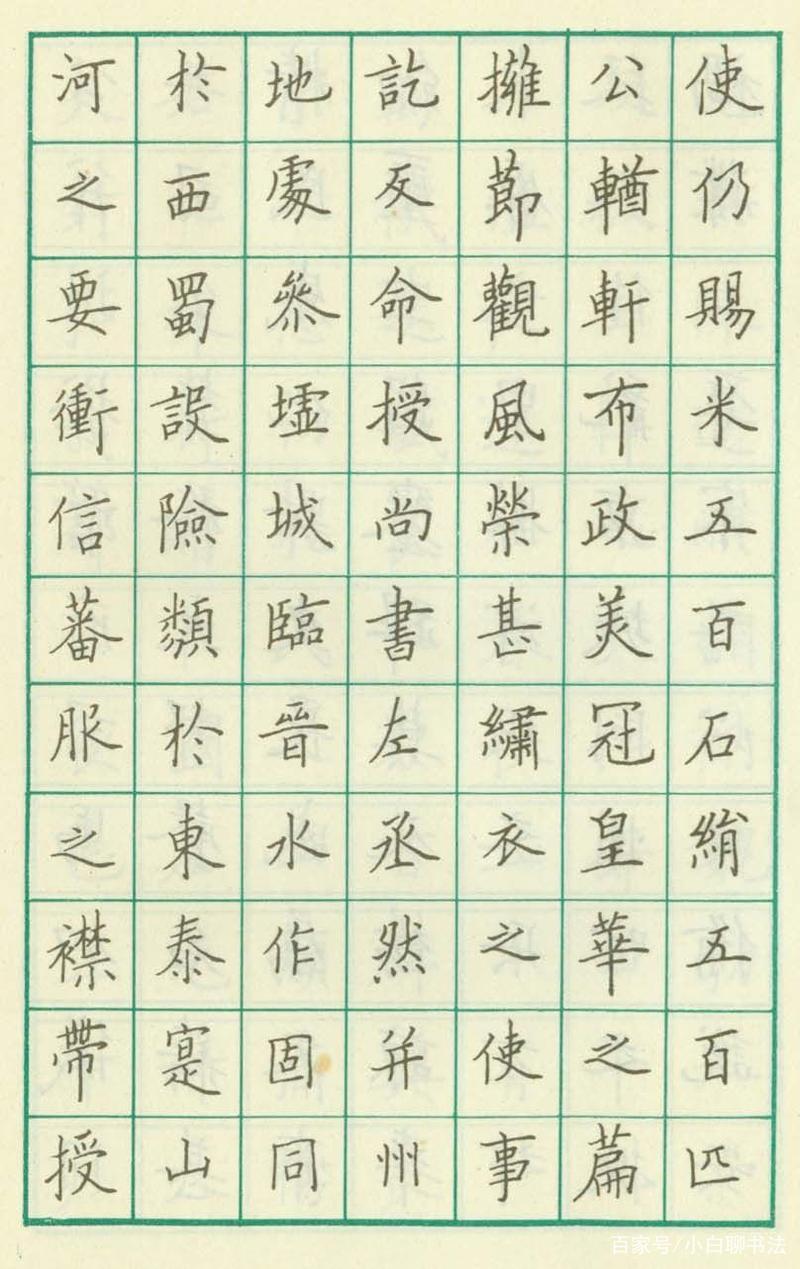 使仍賜米五百石絹五百匹
公輶軒布政美冠皇華之篇
擁節觀風榮甚繡衣之使事
訖反命授尚書左丞然并州
地處參墟城臨晉水作固同
於西蜀設險類於東泰寔山
河之要衝信蕃服之襟帶授
百家号/小白聊书法